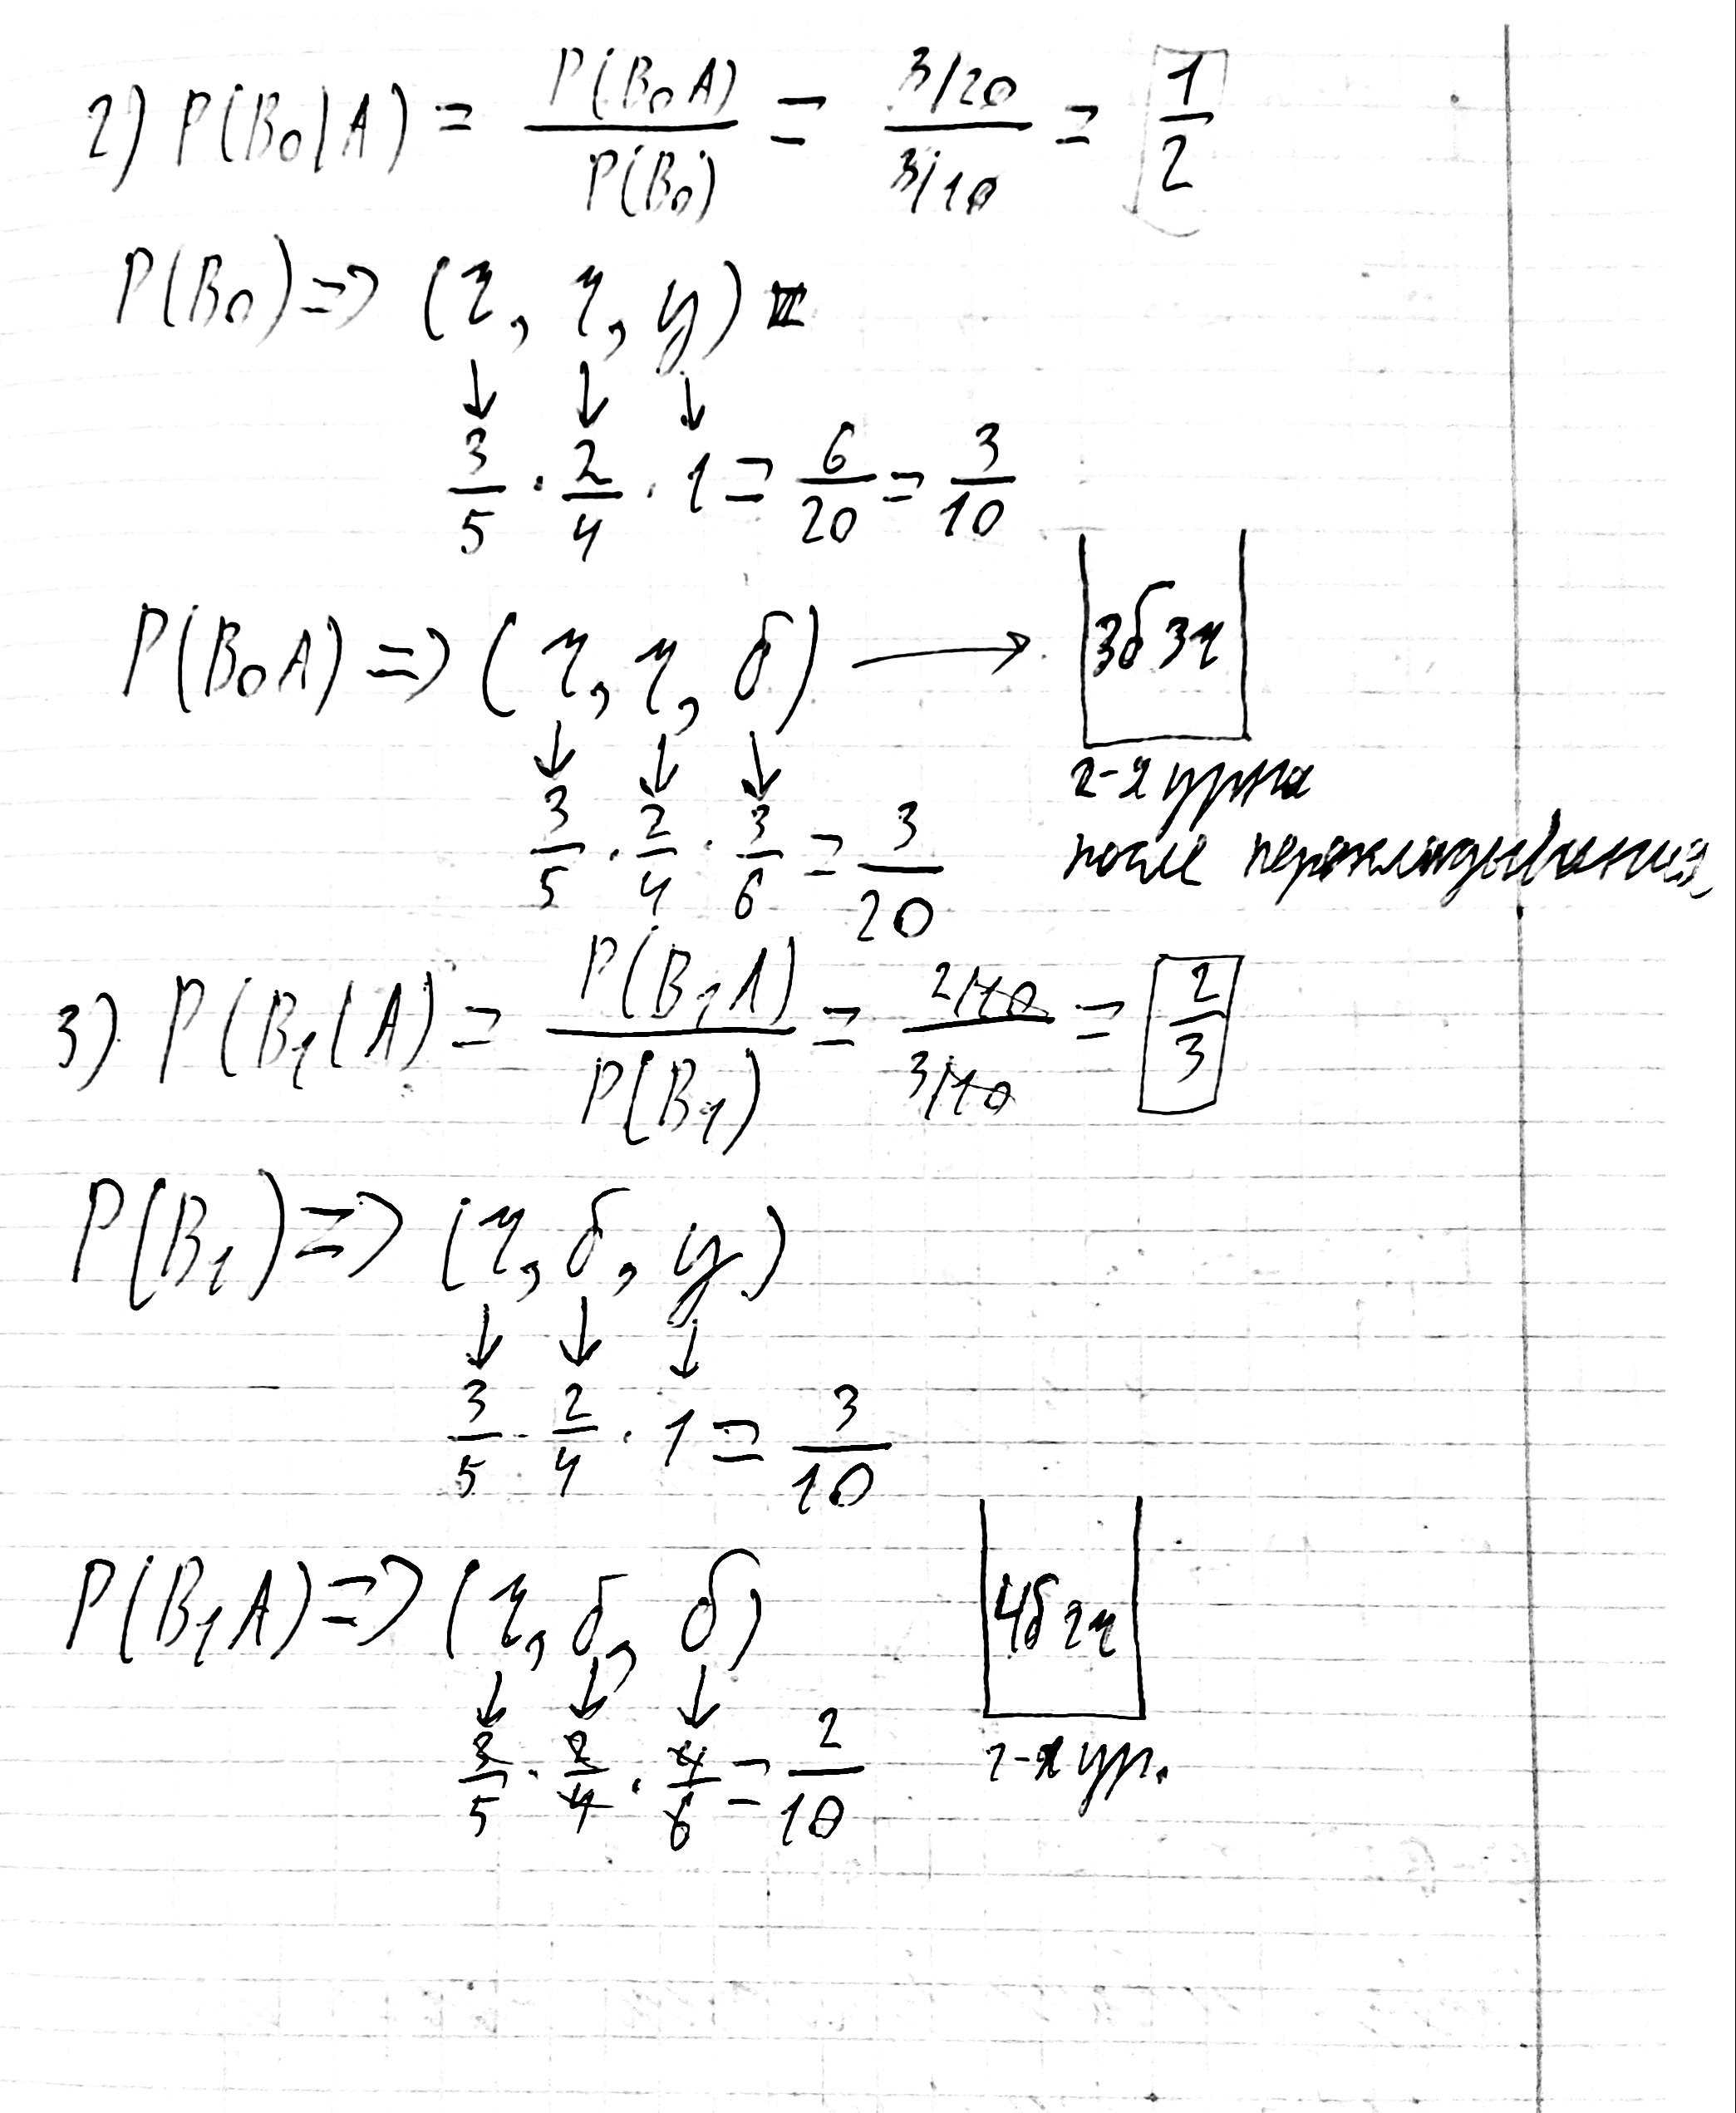 2) P(B₀|A) = P(B₀A)/P(B₀) = (3/20)/(3/10) = 1/2
P(B₀) => (ч, ч, у)
3/5 · 2/4 · 1 = 6/20 = 3/10
P(B₀A) => (ч, ч, б) → 3б 3ч
2-я урна
после перекладывания
3/5 · 2/4 · 3/6 = 3/20
3) P(B₁|A) = P(B₁A)/P(B₁) = (2/10)/(3/10) = 2/3
P(B₁) => (ч, б, у)
3/5 · 2/4 · 1 = 3/10
P(B₁A) => (ч, б, б) 4б 2ч
3/5 · 2/4 · 4/6 = 2/10
2-я ур.